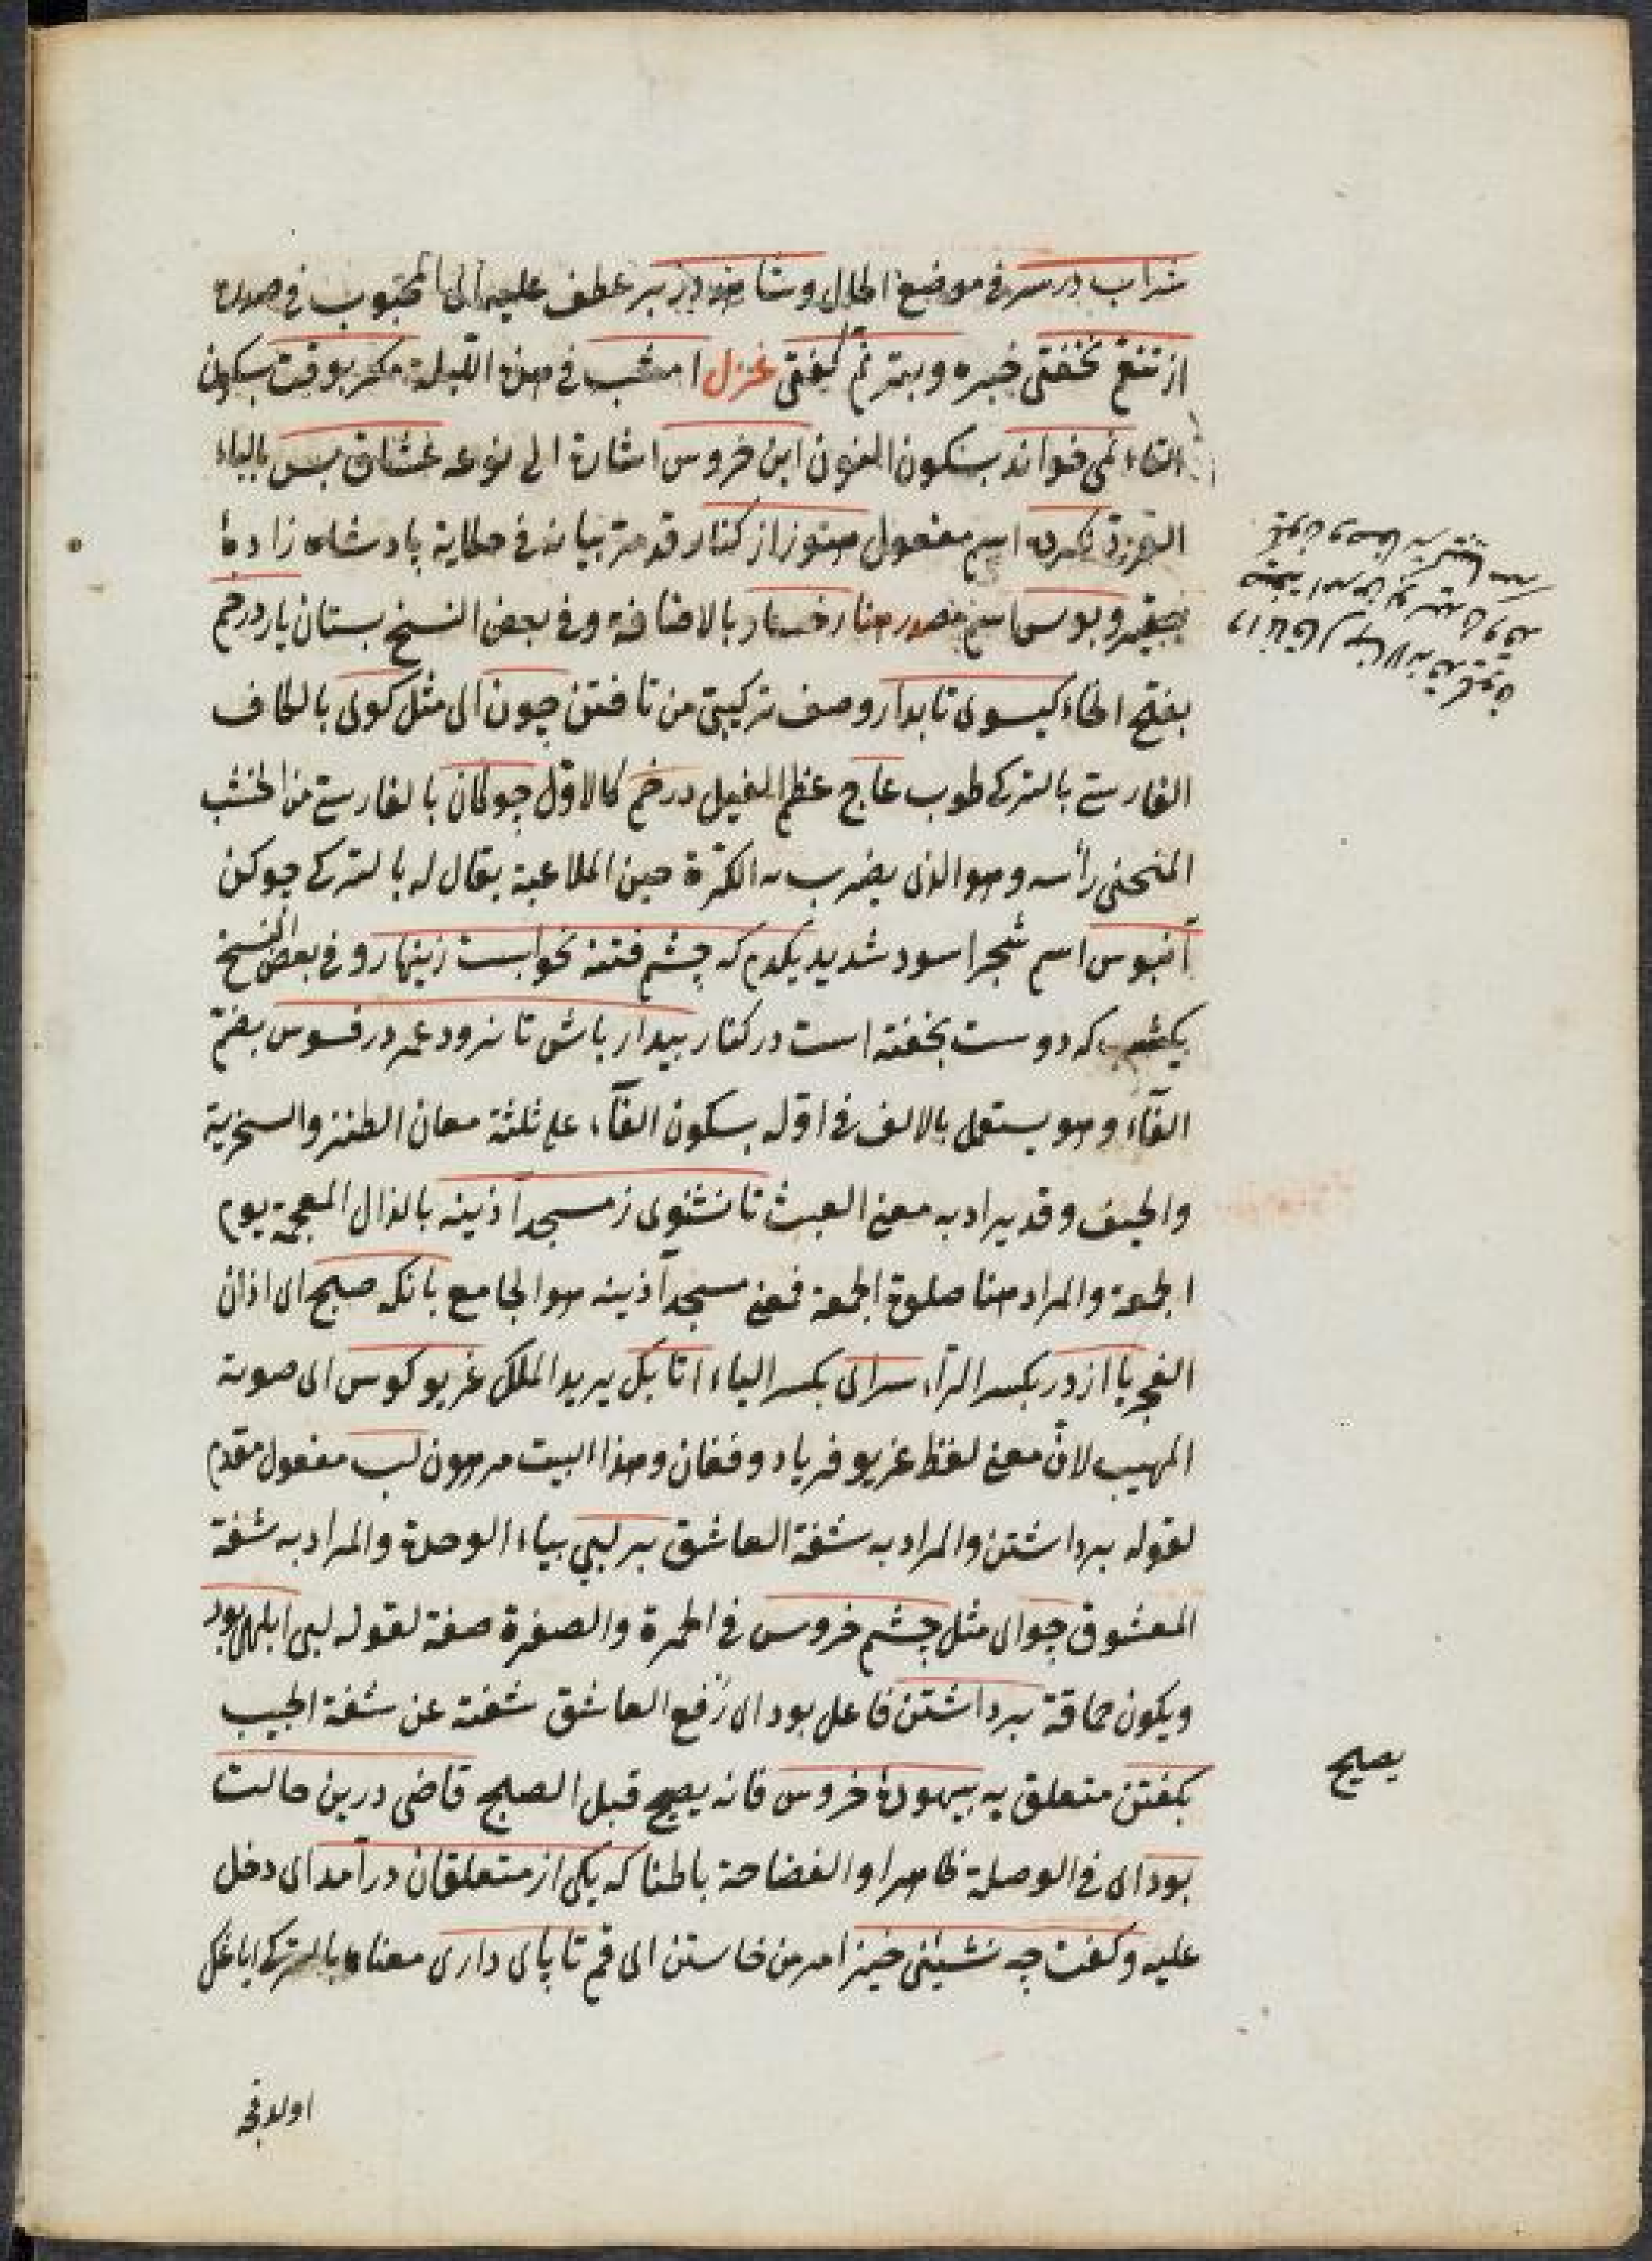 شراب در سر فى موضع الحال وشاهد در بر عطف عليه اى المحبوب فى صدره
از تنعم نخفتى خبره وبترنم كفتى غزل امشب فى هذه الليلة مكر بوقت بسكون
التاء نمى خواند بسكون النون اين خروس اشارة الى نوعه عشاق بس بالباء
نكرده اسم مفعول هنوز از كنار قد مر بيانه فى حكاية پادشاه زادۀ
وبوس اسم مصدر هنا رخسار بالاضافة وفى بعض النسخ بستان يار در خم
بفتح الخاء كيسوى تابدار وصف تركيبى من تافتن چون اى مثل كوى بالكاف
الفارسى بالتركى طوب عاج عظم الفيل در خم كالاول چوكان بالفارسى من الخشب
المنحنى رأسه وهو الذى يضرب به الكرة حين الملاعبة يقال له بالتركى چوكن
آبنوس اسم شجر اسود شديد يكدم كه چشم فتنه بخوابست زينهار وفى بعض النسخ
يكشب كه دوست بخفته است در كنار بيدار باش تا نرود عمر در فسوس بضم
الفاء وهو يستعمل بالالف فى اوله بسكون الفاء على ثلثة معان الطنز والسخرية
والحيف وقد يراد به معنى العبث تا نشنوى ز مسجد آذينه بالذال المعجمة يوم
الجمعة والمراد هنا صلوة الجمعة فمعنى مسجد آذينه هو الجامع بانكه صبح اى اذان
الفجر يا از در بكسر الراء سراى بكسر الياء اتابك يريد الملك غريو كوس اى صوته
المهيب لان معنى لفظ غريو فرياد وفغان وهذا البيت مرهون لب مفعول مقدم
لقوله برداشتن والمراد به شفة العاشق بر لبى بياء الوحدة والمراد به شفة
المعشوق چو اى مثل چشم خروس فى الحمرة والصغرة صفة لقوله لبى ابلهى بود
ويكون حماقة برداشتن فاعل بود اى رفع العاشق شفته عن شفة الحبيب
بكفتن متعلق به بيهودۀ خروس فانه يصيح قبل الصبح قاضى درين حالت
بود اى فى الوصلة ظاهرا والفضاحة باطنا كه يكى از متعلقان درآمد اى دخل
عليه وكفت چه نشينى خيز امر من خاستن اى قم تا پاى دارى معناه بالتركى اياغك
يصيح
اولدقجه